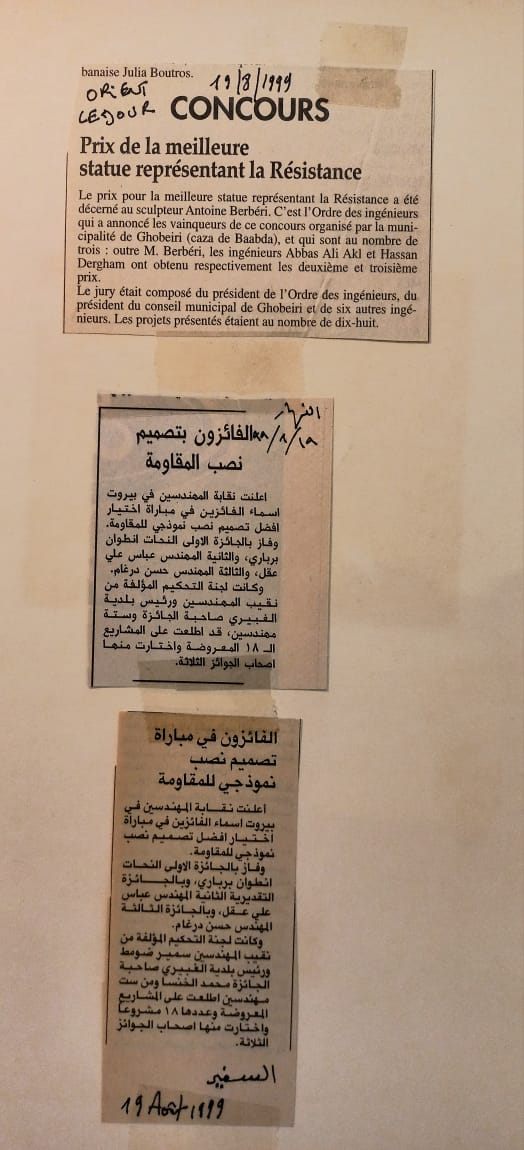 banaise Julia Boutros.
19/8/1999
ORIENT
LE JOUR
CONCOURS
Prix de la meilleure
statue représentant la Résistance
Le prix pour la meilleure statue représentant la Résistance a été
décerné au sculpteur Antoine Berbéri. C'est l'Ordre des ingénieurs
qui a annoncé les vainqueurs de ce concours organisé par la muni-
cipalité de Ghobeiri (caza de Baabda), et qui sont au nombre de
trois : outre M. Berbéri, les ingénieurs Abbas Ali Akl et Hassan
Dergham ont obtenu respectivement les deuxième et troisième
prix.
Le jury était composé du président de l'Ordre des ingénieurs, du
président du conseil municipal de Ghobeiri et de six autres ingé-
nieurs. Les projets présentés étaient au nombre de dix-huit.
النهار
الفائزون بتصميم
نصب المقاومة
اعلنت نقابة المهندسين في بيروت
اسماء الفائزين في مباراة اختيار
افضل تصميم نصب نموذجي للمقاومة.
وفاز بالجائزة الاولى النحات انطوان
برباري، والثانية المهندس عباس علي
عقل، والثالثة المهندس حسن درغام.
وكانت لجنة التحكيم المؤلفة من
نقيب المهندسين ورئيس بلدية
الغبيري صاحبة الجائزة وستة
مهندسين، قد اطلعت على المشاريع
الـ ١٨ المعروضة واختارت منها
اصحاب الجوائز الثلاثة.
الفائزون في مباراة
تصميم نصب
نموذجي للمقاومة
اعلنت نقابة المهندسين في
بيروت اسماء الفائزين في مباراة
اختيار افضل تصميم نصب
نموذجي للمقاومة.
وفاز بالجائزة الاولى النحات
انطوان برباري، وبالجائزة
التقديرية الثانية المهندس عباس
علي عقل، وبالجائزة الثالثة
المهندس حسن درغام.
وكانت لجنة التحكيم المؤلفة من
نقيب المهندسين سمير ضومط
ورئيس بلدية الغبيري صاحبة
الجائزة محمد الخنسا ومن ست
مهندسين اطلعت على المشاريع
المعروضة وعددها ١٨ مشروعا
واختارت منها اصحاب الجوائز
الثلاثة.
السفير
19 Août 1999